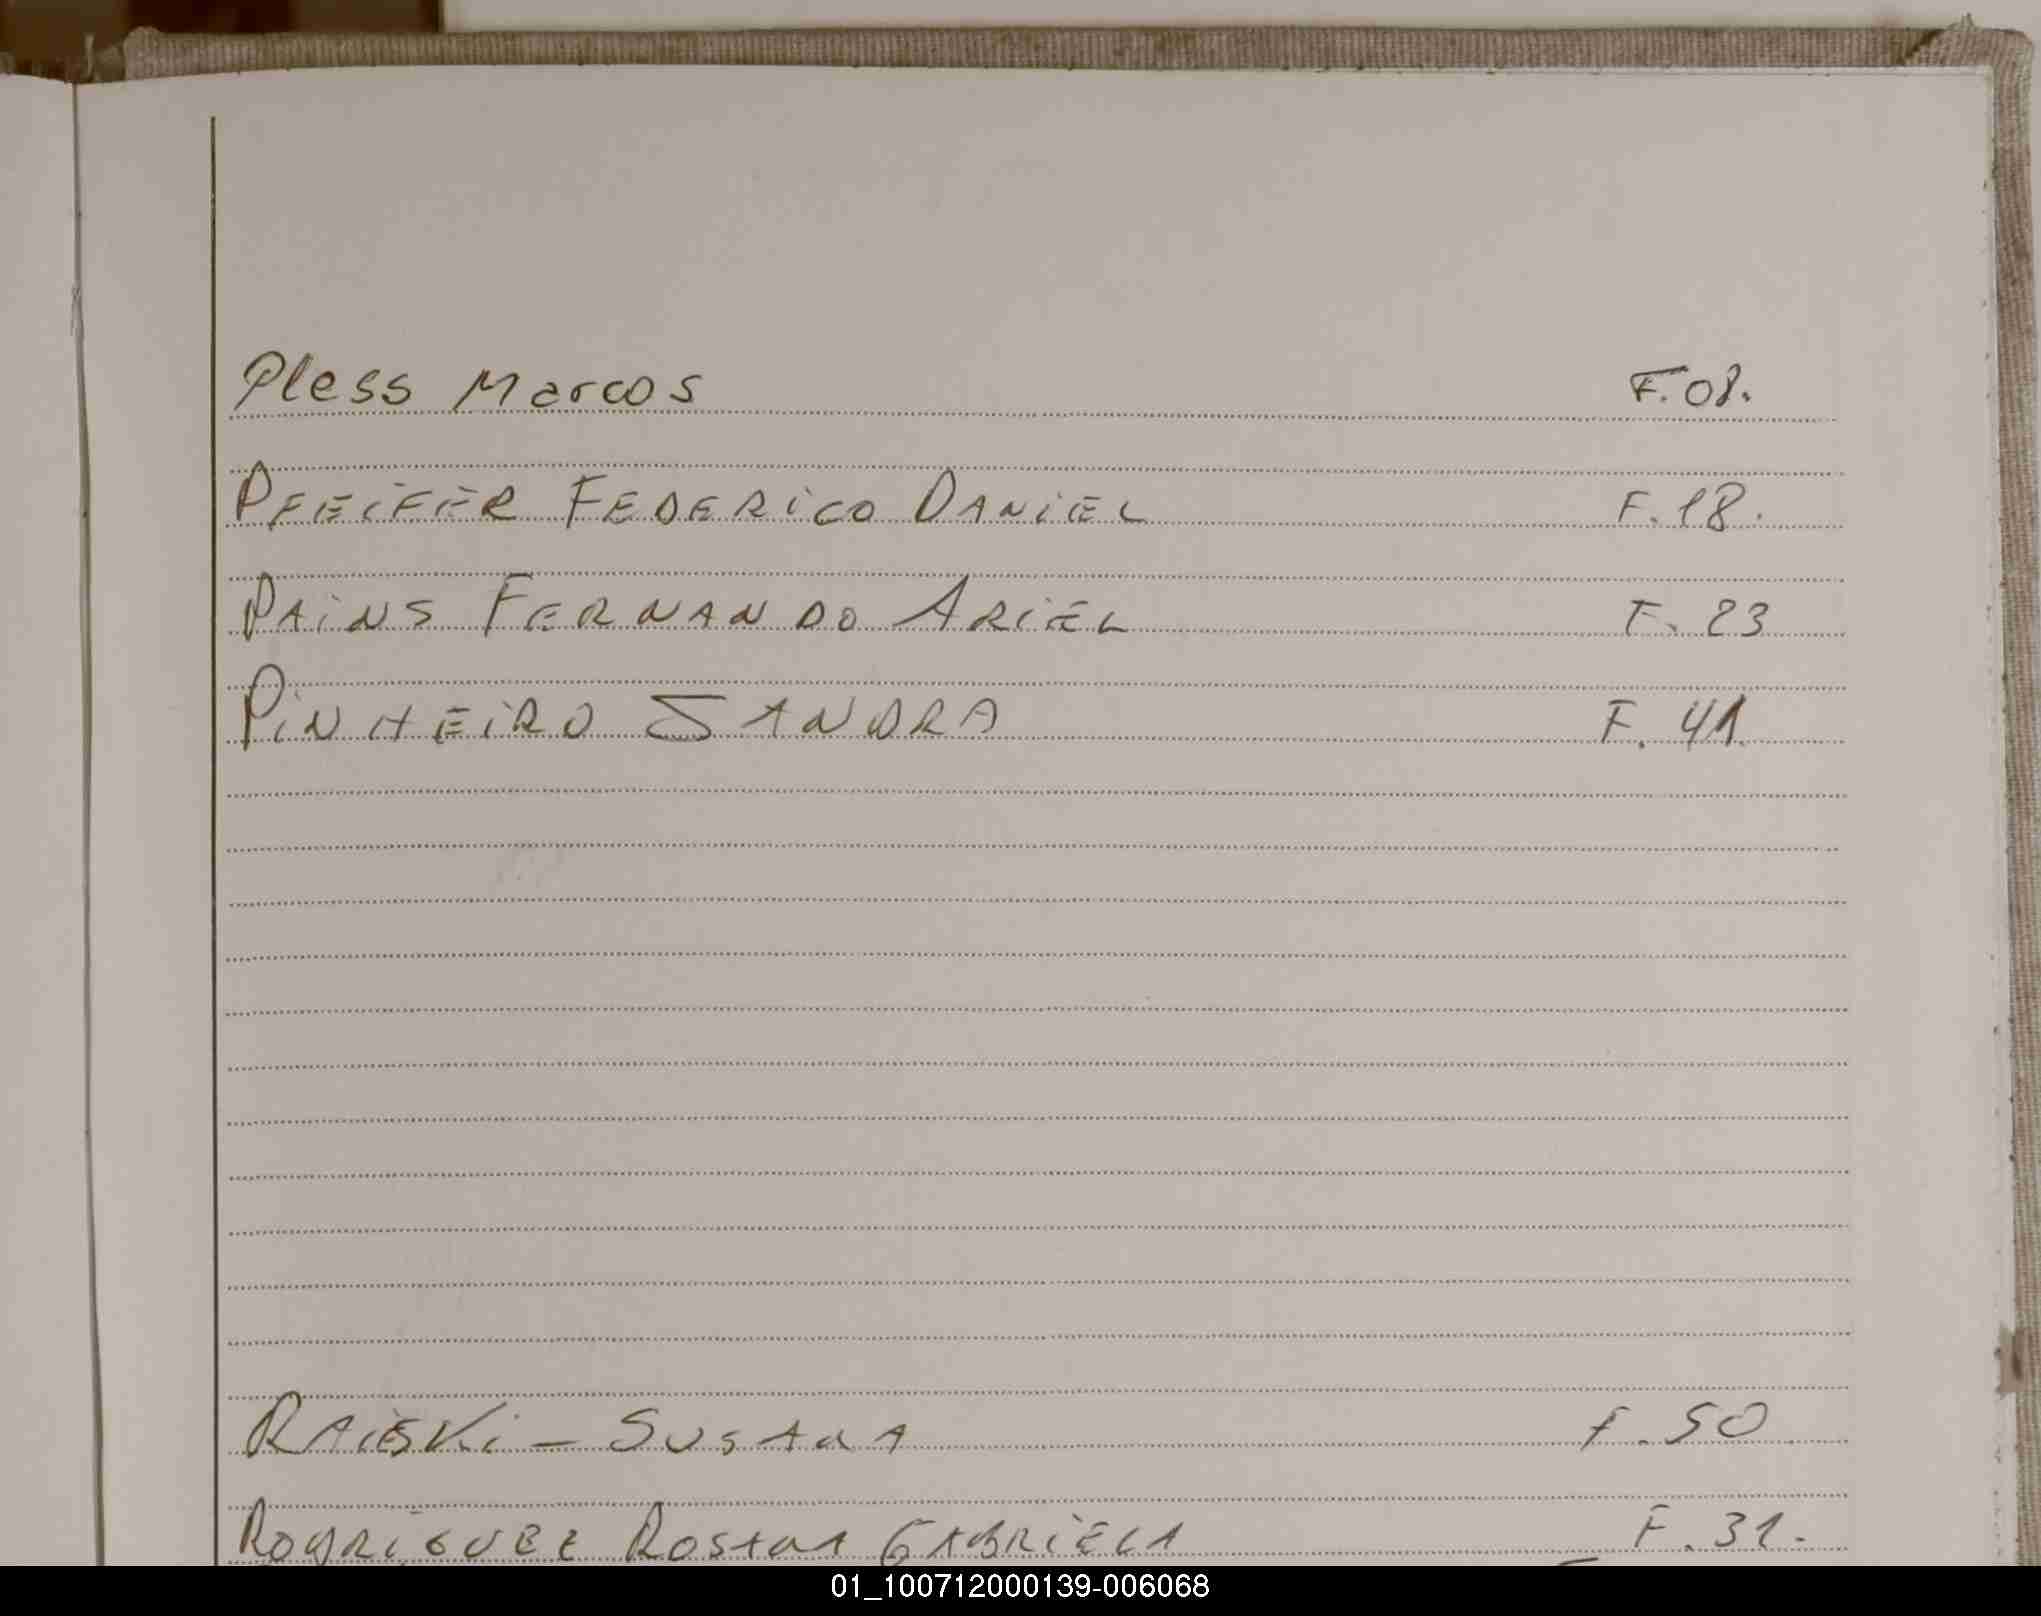 Pless Marcos F.08.
PFEiFER FEDERiCO DANiEL F.18.
PAiNS FERNANDO ARiEL F. 23
PiNHEiRO SANDRA F. 41
RAiESKi - SUSANA f. 50
RODRiGUEZ ROSANA GABRiELA F. 31.
01_100712000139-006068